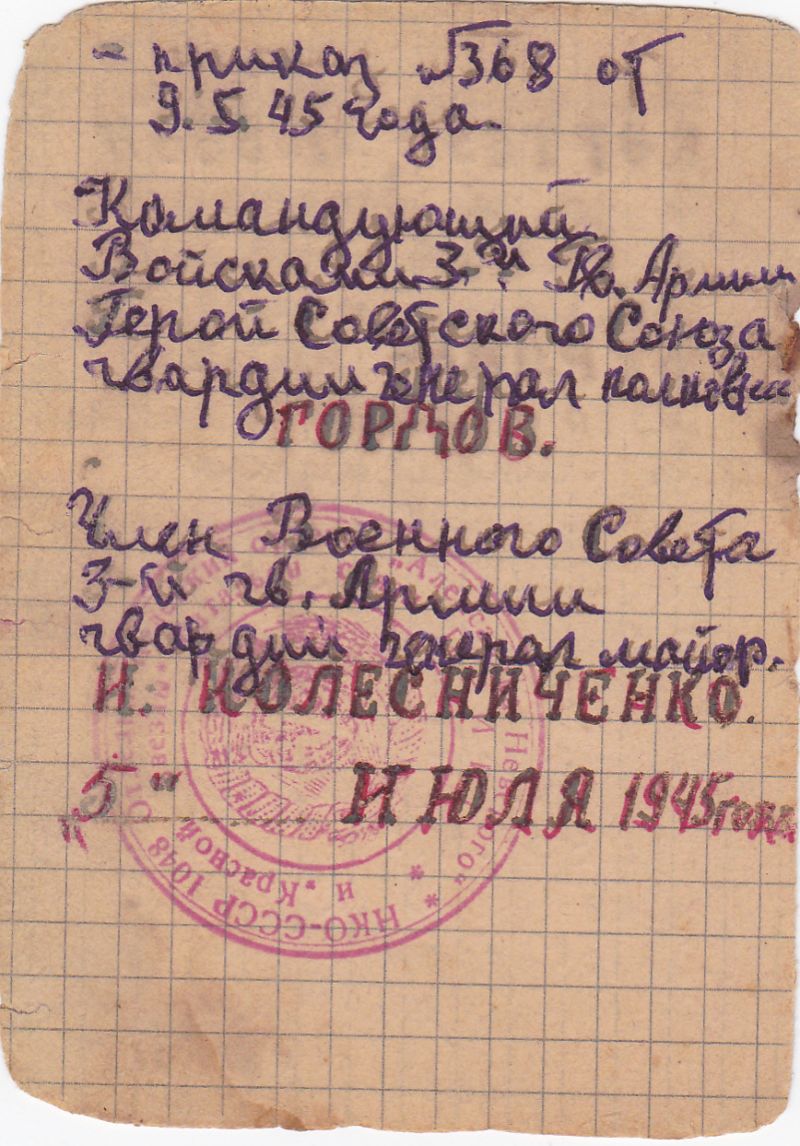 - приказ №368 от
9.5.45 года.
Командующий
Войсками 3-й Гв. Армии
Герой Советского Союза
гвардии генерал полковник
ГОРДОВ.
Член Военного Совета
3-й гв. Армии
гвардии генерал майор.
И. КОЛЕСНИЧЕНКО.
„5“ ИЮЛЯ 1945 года
НКО-СССР 1048
и „Красной
Невского“